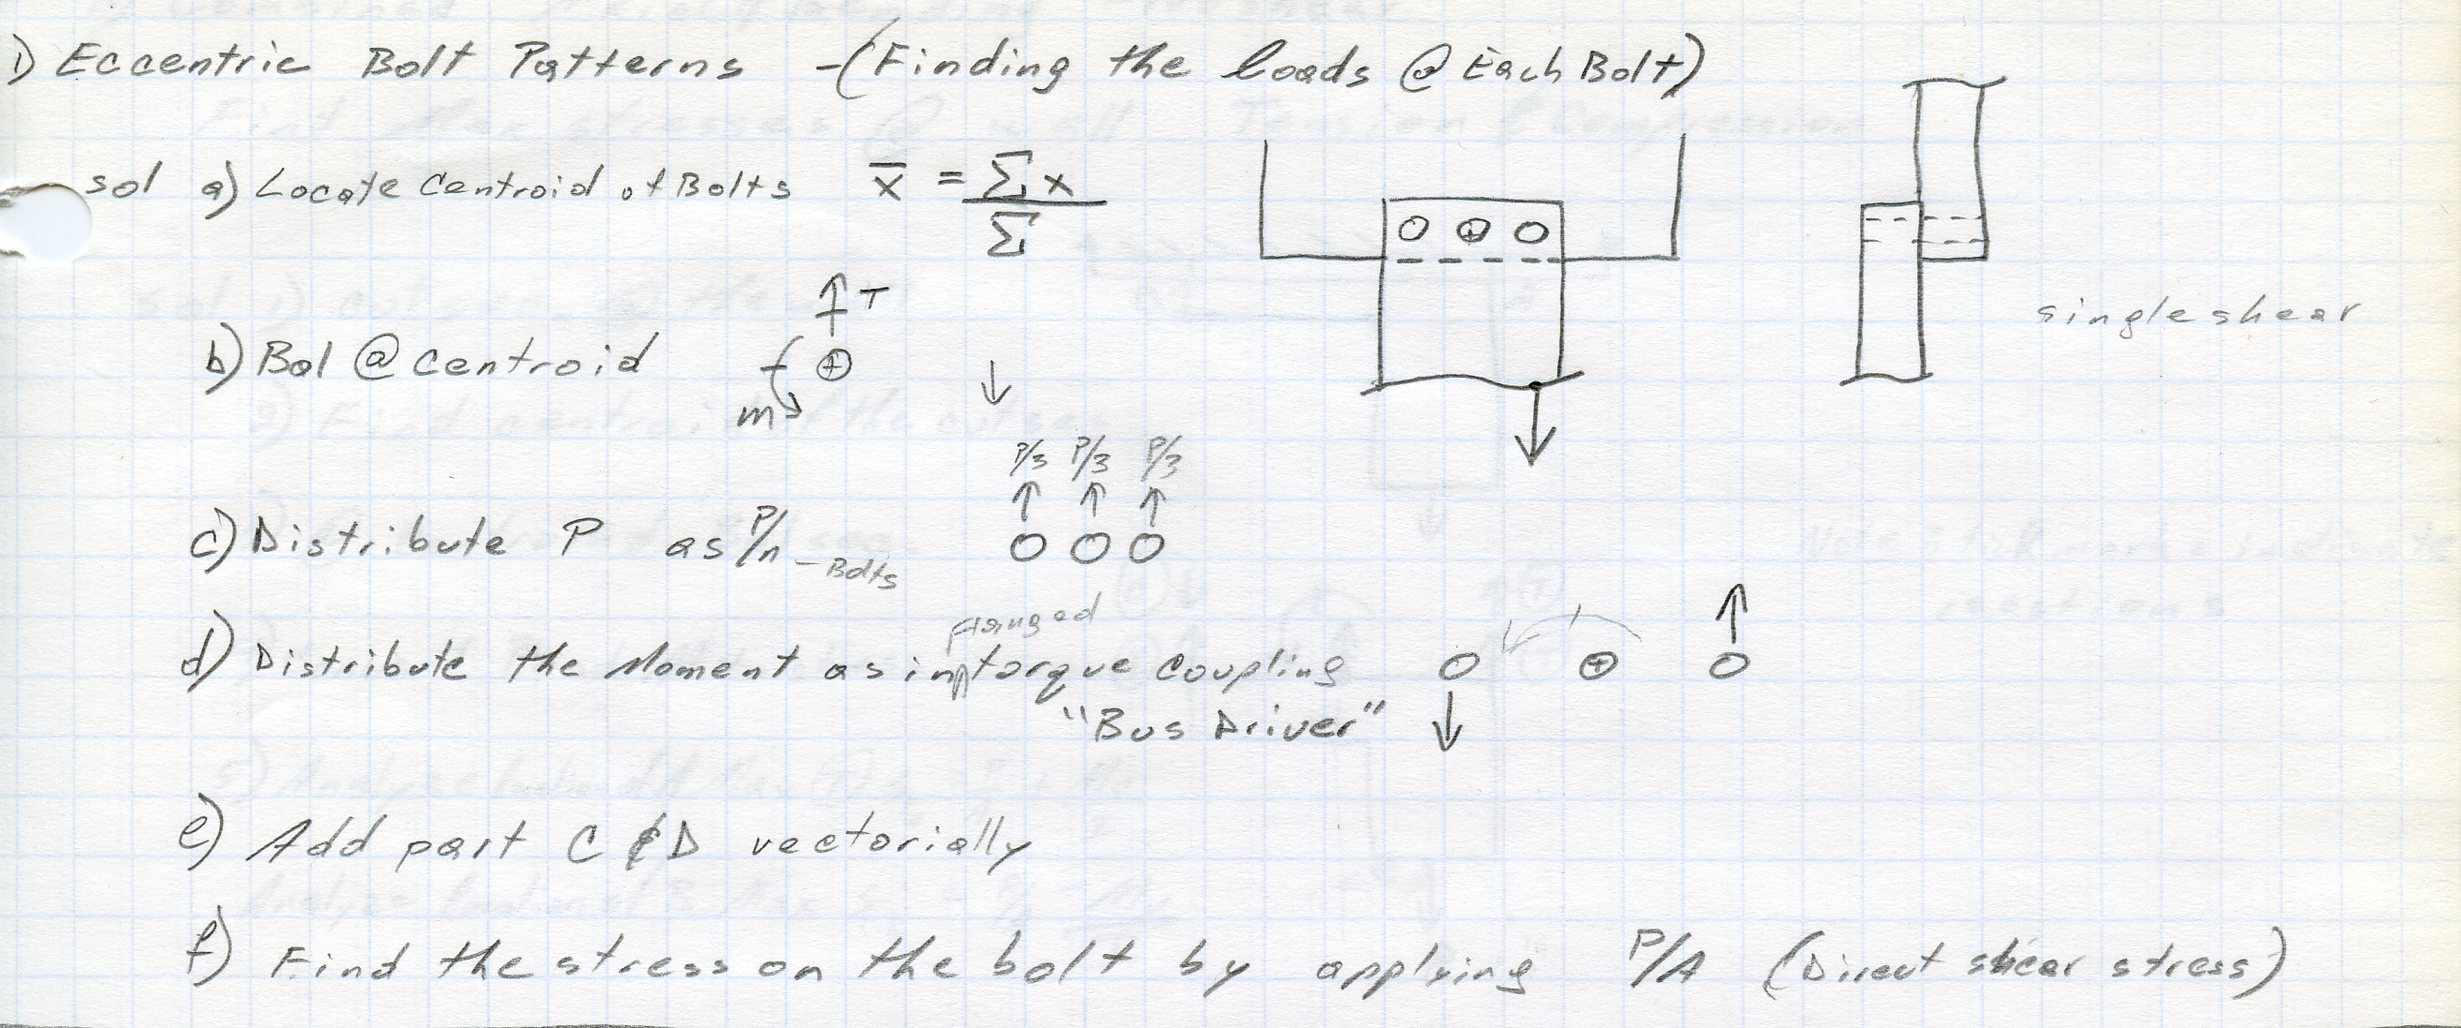 1) Eccentric Bolt Patterns - (Finding the loads @ Each Bolt)
sol a) Locate Centroid of Bolts x̄ = Σx / Σ
single shear
T
b) Bal @ centroid
m
P/3 P/3 P/3
c) Distribute P as P/n - Bolts
flanged
d) Distribute the Moment as in torque coupling
"Bus Driver"
e) Add part C & D vectorially
f) Find the stress on the bolt by applying P/A (Direct shear stress)